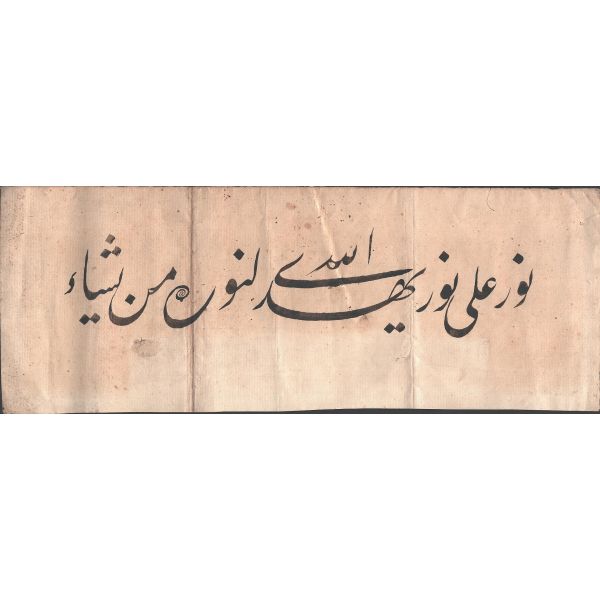 نور علی نور یهدی الله لنوره من یشاء